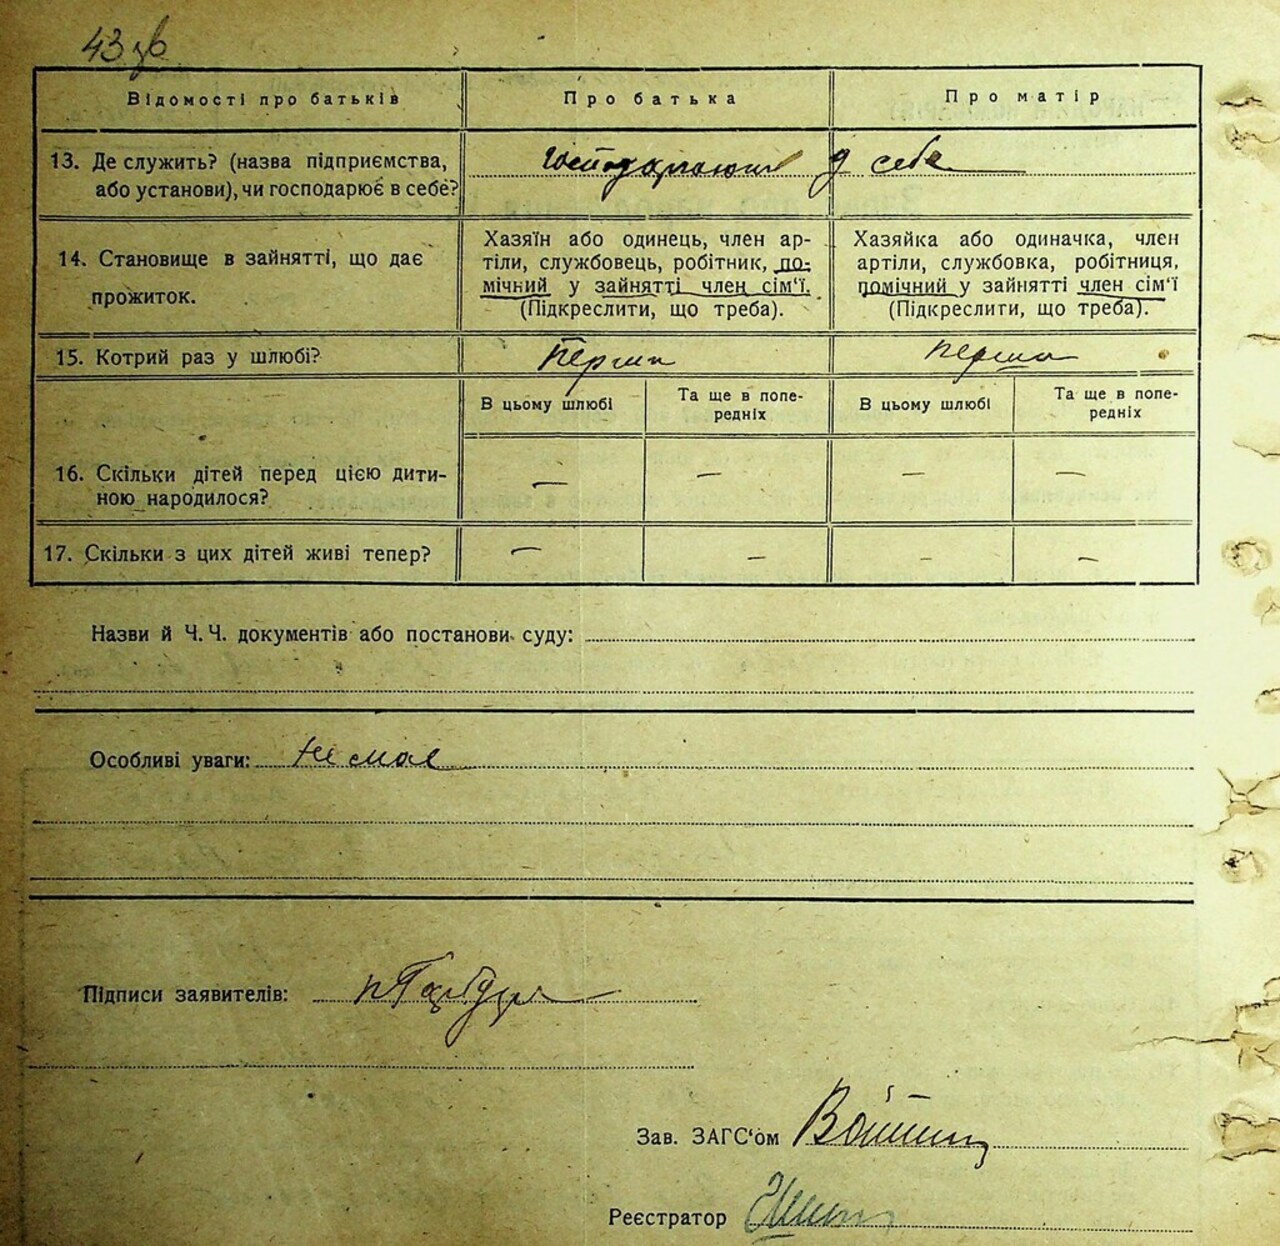 43 зв
Відомості про батьків
Про батька
Про матір
13. Де служить? (назва підприємства,
або установи), чи господарює в себе?
у себе
14. Становище в зайнятті, що дає
прожиток.
Хазяїн або одинець, член ар-
тіли, службовець, робітник, по-
мічний у зайнятті член сім'ї.
(Підкреслити, що треба).
Хазяйка або одиначка, член
артіли, службовка, робітниця,
помічний у зайнятті член сім'ї
(Підкреслити, що треба).
15. Котрий раз у шлюбі?
Перший
перший
В цьому шлюбі
Та ще в попе-
редніх
В цьому шлюбі
Та ще в попе-
редніх
16. Скільки дітей перед цією дити-
ною народилося?
— — — —
17. Скільки з цих дітей живі тепер?
— — — —
Назви й Ч. Ч. документів або постанови суду:
Особливі уваги: Не має
Підписи заявителів:
Зав. ЗАГС'ом
Реєстратор